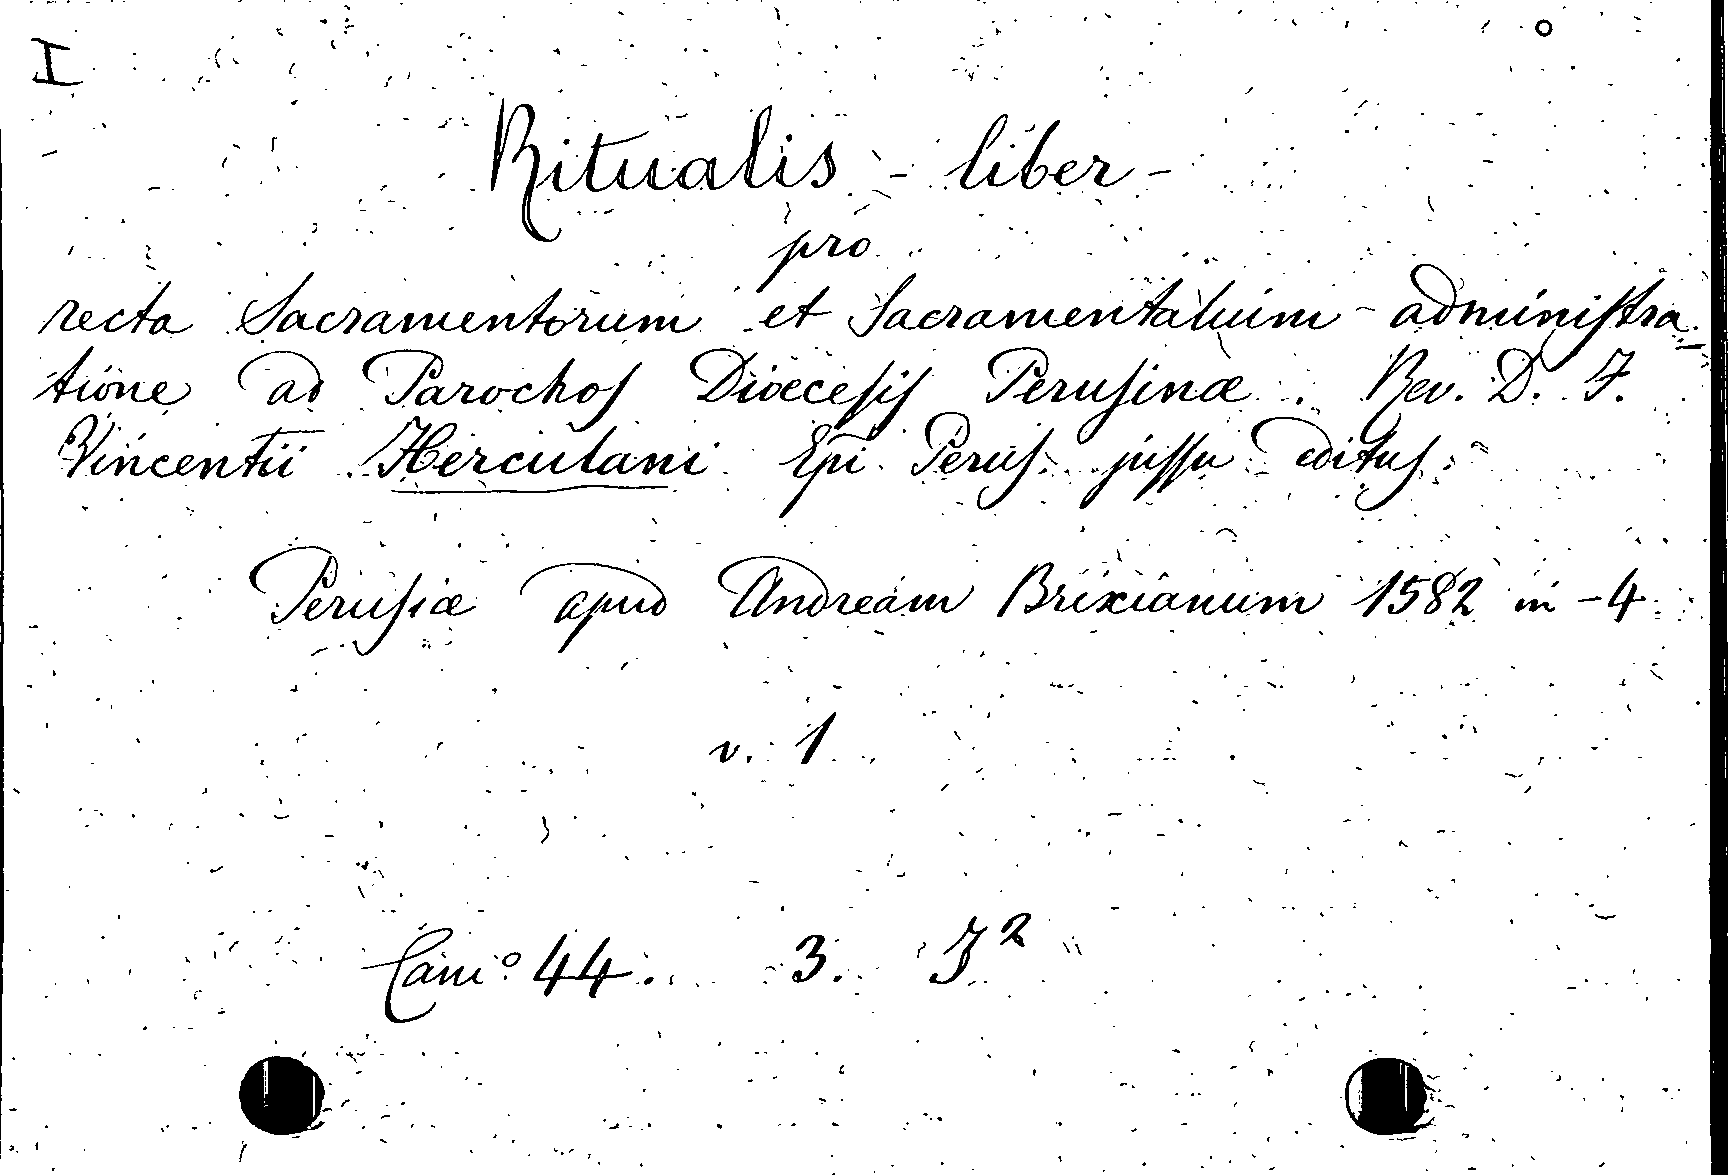 I
Ritualis - liber -
pro
recta Sacramentorum et Sacramentalium - administra
tione ad Parochos Dioecesis Perusinæ. Rev. D. F.
Vincentii Herculani Epi Perus. jussu editus.
Perusiæ apud Andream Brixianum 1582 in - 4
v. 1
Cam.° 44. 3. J²